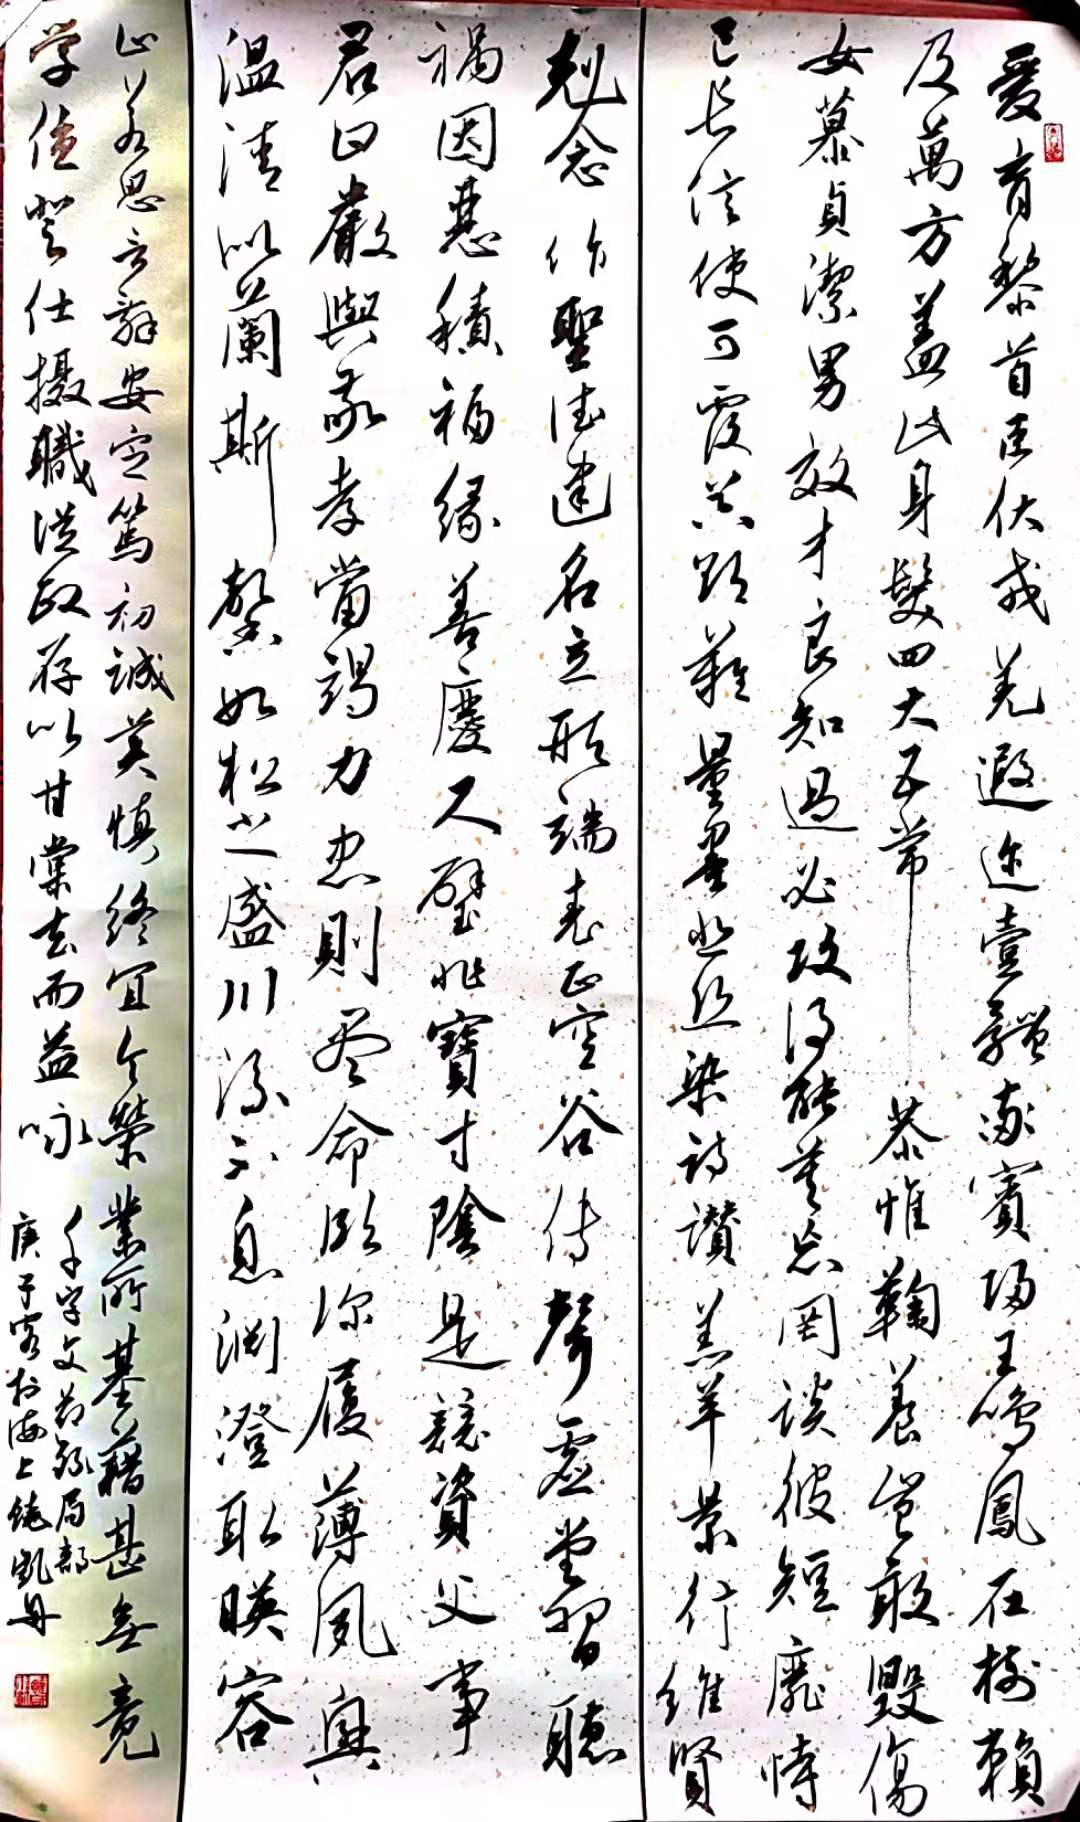 愛育黎首臣伏戎羌遐迩壹體率賓歸王鳴鳳在樹賴
及萬方盖此身髮四大五常恭惟鞠養豈敢毀傷
女慕貞潔男效才良知過必改得能莫忘罔談彼短靡恃
己長信使可覆器欲難量墨悲丝染詩讃羔羊景行維賢
剋念作聖德建名立形端表正空谷传聲虛堂習聽
禍因惡積福緣善慶尺璧非寶寸陰是競資父事
君曰嚴與敬孝當竭力忠則尽命臨深履薄夙興
温清似蘭斯馨如松之盛川流不息渊澄取映容
止若思言辭安定篤初誠美慎終宜令榮業所基藉甚無竟
学優登仕摄職從政存以甘棠去而益咏
千字文节録局部
庚子客於海上饒凱丹